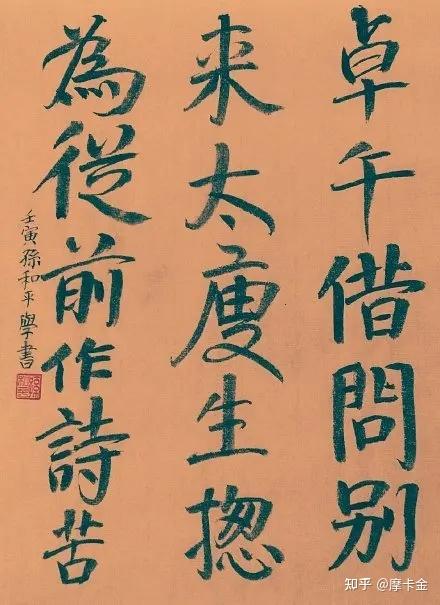 卓午借問别
来太瘦生揔
為從前作詩苦
壬寅孫和平學書
知乎 @摩卡金